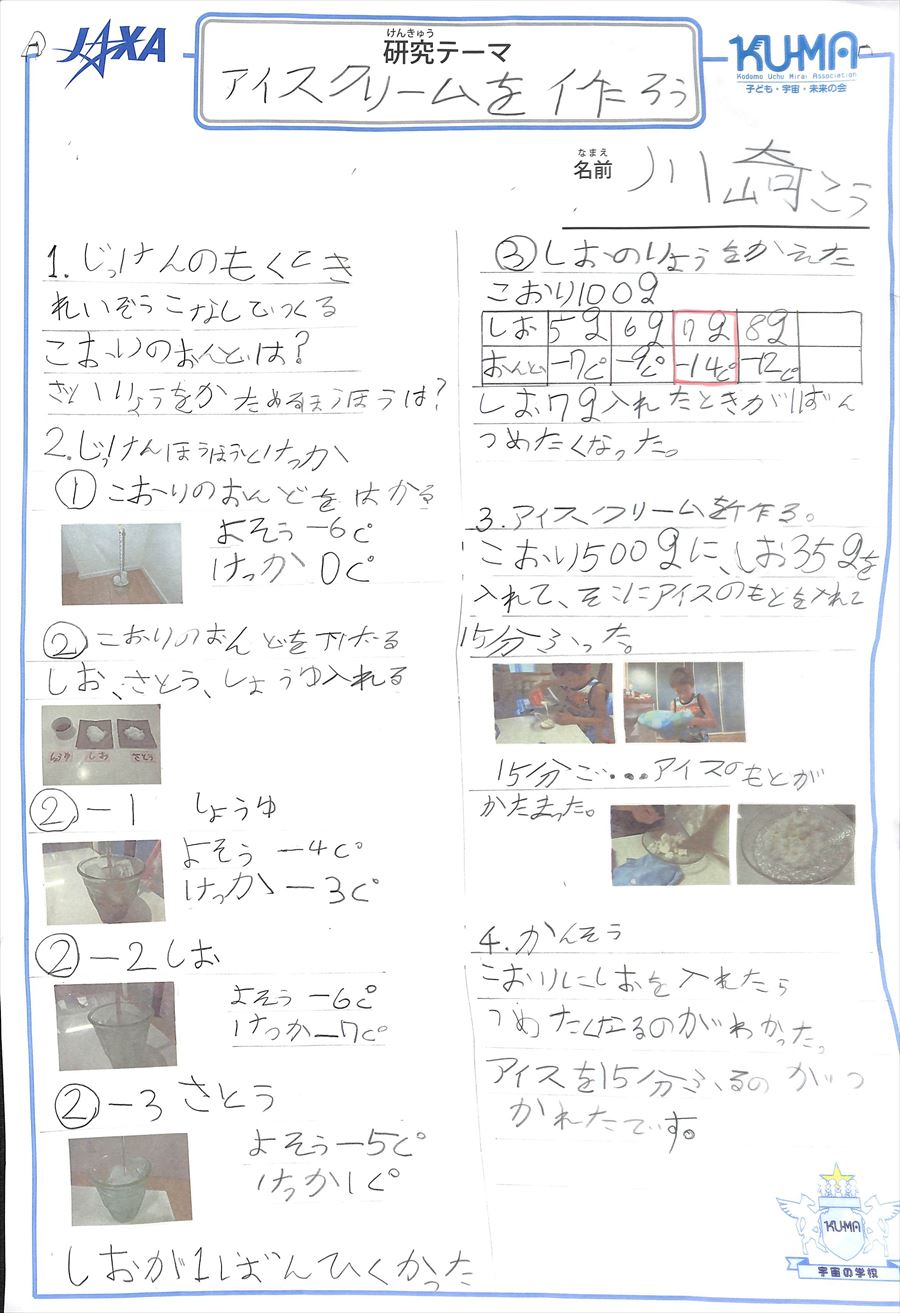 JAXA
けんきゅう
研究テーマ
アイスクリームを作ろう
KU-MA
Kodomo Uchu Mirai Association
子ども・宇宙・未来の会
なまえ
名前 川崎こう
1.じっけんのもくてき
れいぞうこなしでつくる
こおりのおんどは?
ざいりょうをかためるほうほうは?
2.じっけんほうほうとけっか
①こおりのおんどをはかる
よそう -6c°
けっか 0c°
②こおりのおんどを下げる
しお、さとう、しょうゆ入れる
しょうゆ しお さとう
②-1 しょうゆ
よそう -4c°
けっか -3c°
②-2 しお
よそう -6c°
けっか -7c°
②-3 さとう
よそう -5c°
けっか 1c°
しおが1ばんひくかった
③しおのりょうをかえた
こおり100g
しお 5g 6g 7g 8g
おんど -7c° -9c° -14c° -12c°
しお7g入れたときが1ばん
つめたくなった。
3.アイスクリームを作る。
こおり500gに、しお35gを
入れて、そこにアイスのもとを入れて
15分ふった。
15分ご・・・アイスのもとが
かたまった。
4.かんそう
こおりにしおを入れたら
つめたくなるのがわかった。
アイスを15分ふるのがつ
かれたです。
KU-MA
宇宙の学校